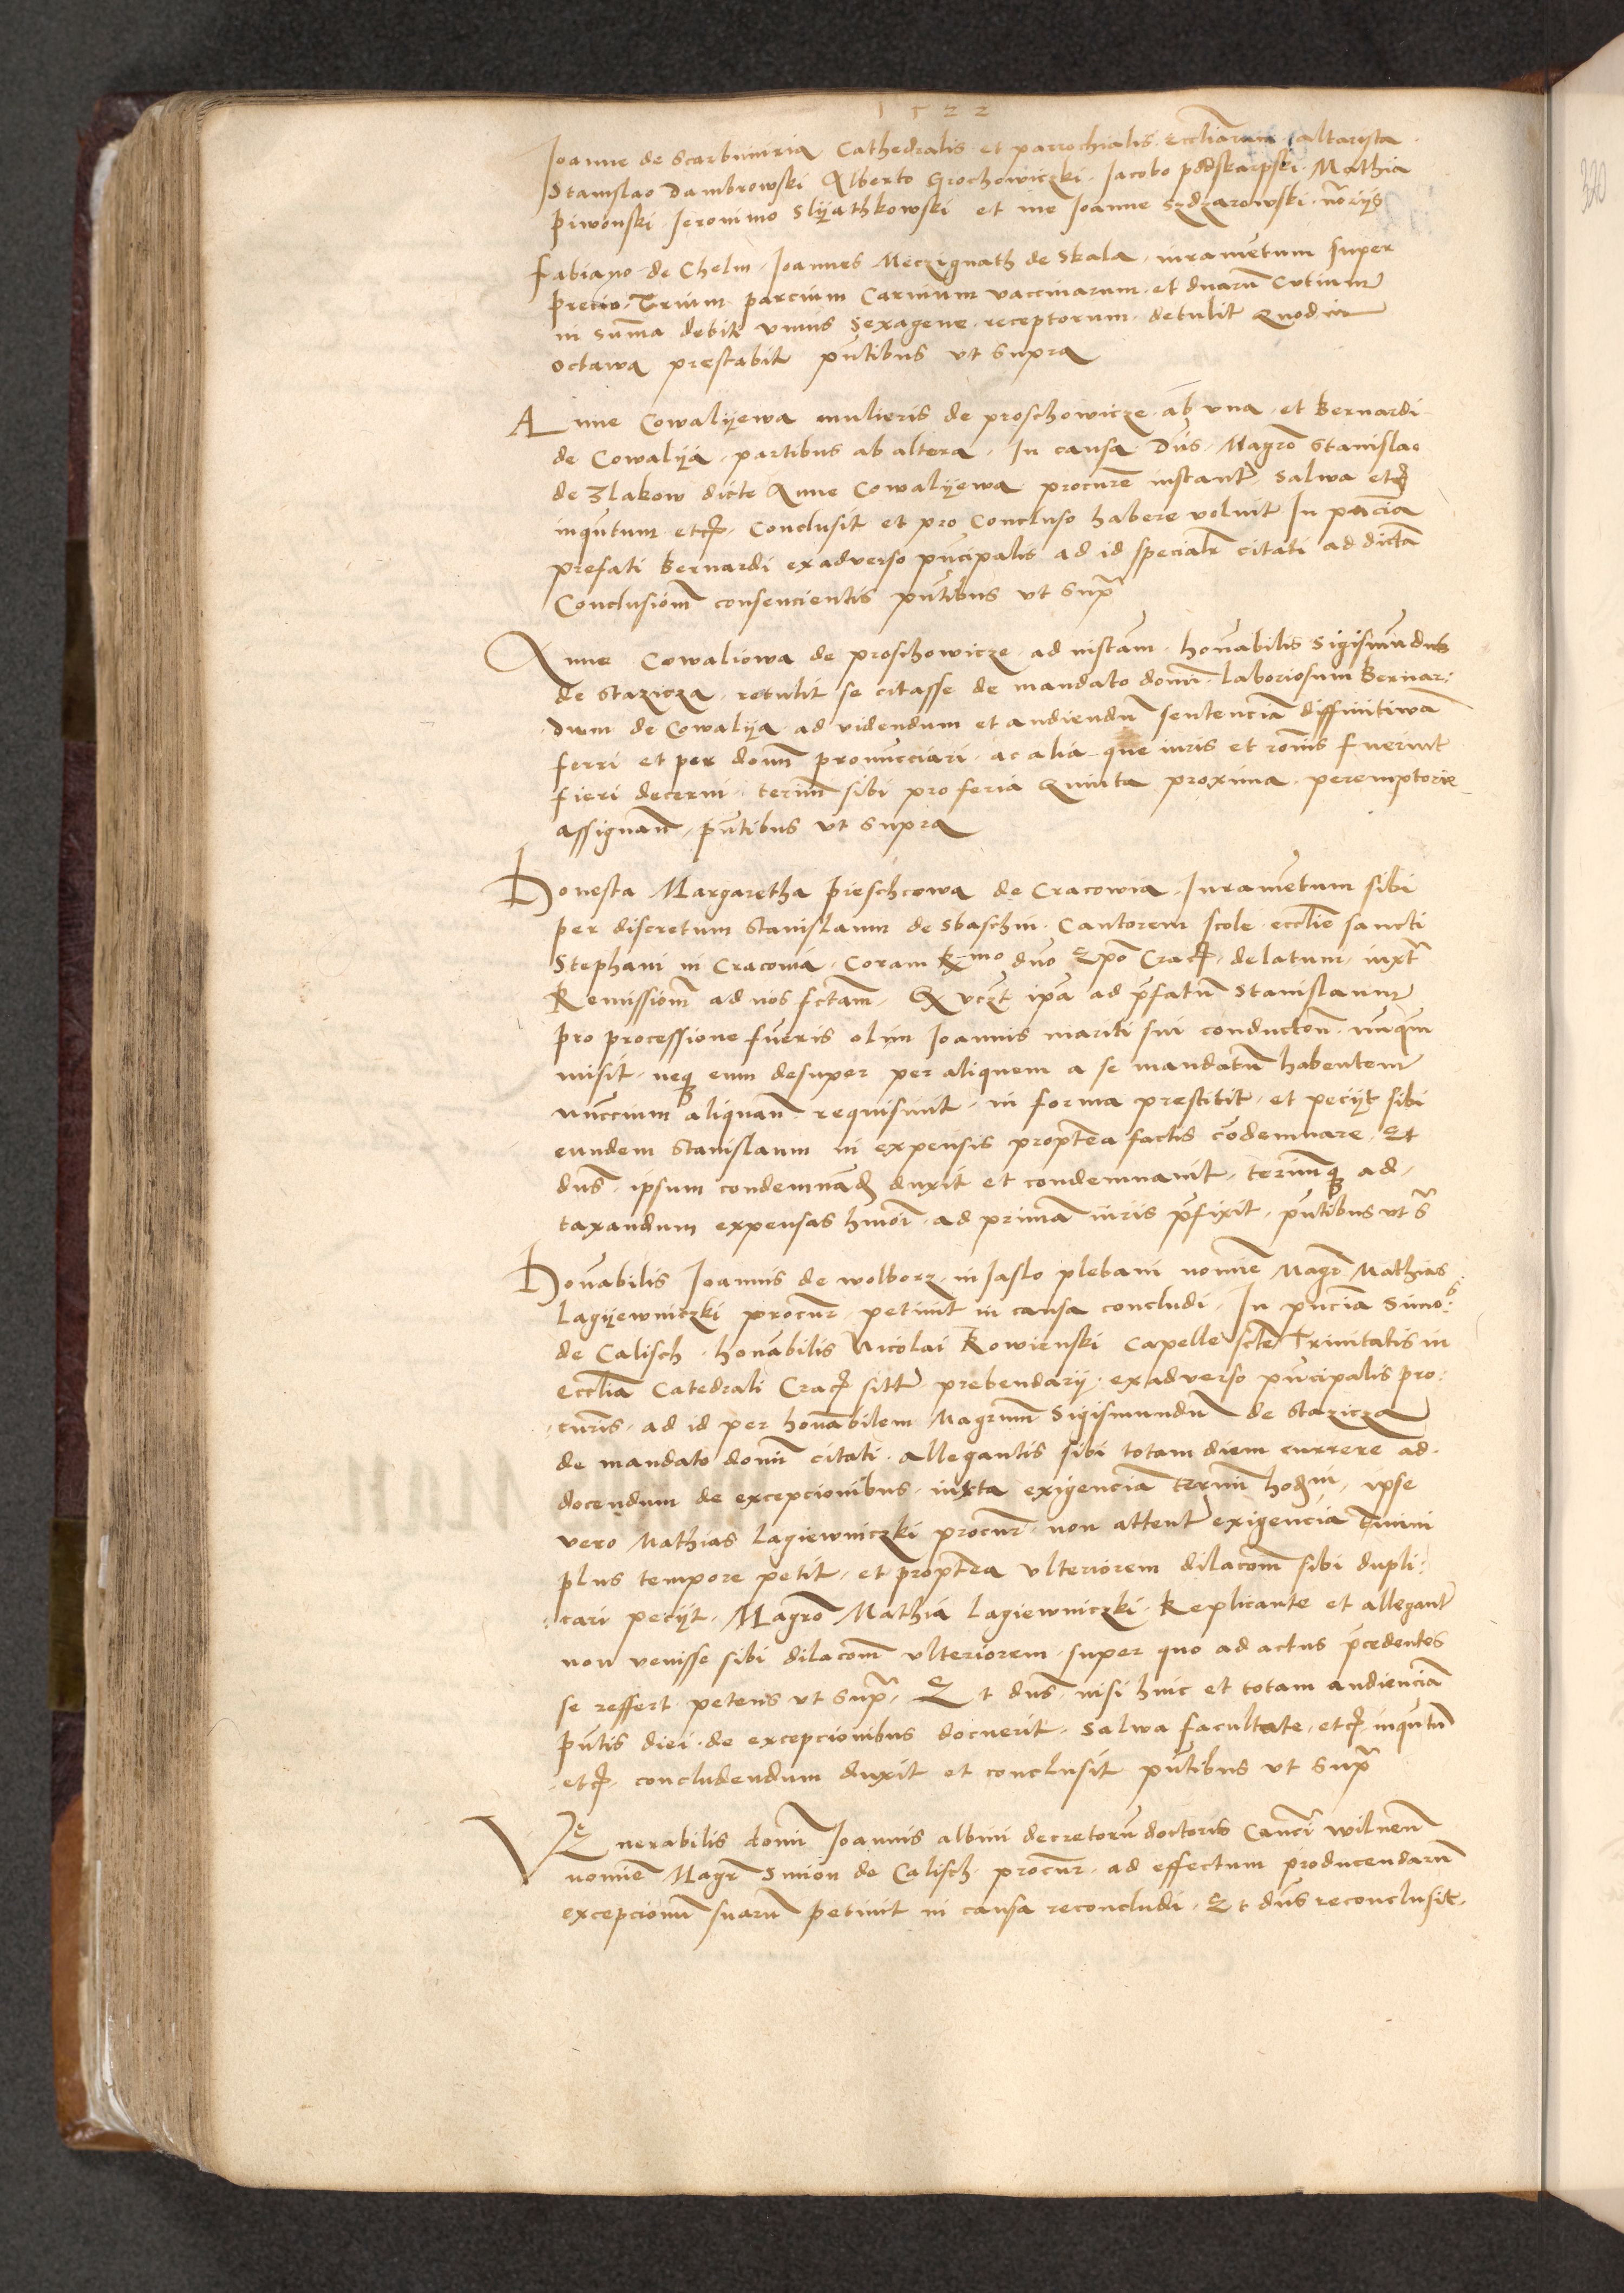 1522
Ioanne de Scarbimiria Cathedralis et parrochialis eccliarum altarista
Stanislao Dambrowski Alberto Grochowiczki Iacobo podskarpski Mathia
Piwonski Ieronimo Slyathkowski et me Ioanne Szdzarowski norijs
Fabiano de Chelm Ioannes Meczignath de Skala iuramentum super
precio Trium parcium Carnium vaccinarum et duaru Cutium
in suma debiti unius sexagene receptorum detulit Quod in
octawa prestabit pntibus ut supra
Anne Cowalijewa mulieris de proschowicze ab una et Bernardi
de Cowalija partibus ab altera In causa Dns Magro Stanislao
de Zlakow dicte Anne Cowalijewa procure instante Salwa etc
inqntum etc Conclusit et pro Concluso habere voluit In pncia
prefati Bernardi ex adverso principalis ad id specialr citati ad dicta
Conclusiom consencientis pntibus ut supr
Anne Cowaliowa de proschowicze ad instam honabilis Sigismundus
de Stazicza retulit se citasse de mandato domi laboriosum Bernar:
dum de Cowalija ad videndum et audiendu sentencia diffinitiwa
ferri et per domi pronuncciari ac alia que iuris et ronis fuerint
fieri decerni termi sibi pro feria Quinta proxima peremptorie
assignan pntibus ut supra
Honesta Margaretha Pieschcowa de Cracowia Iuramentum sibi
per discretum Stanislaum de Sbaschin Cantorem scole ecclie sancti
Stephani in Cracowia Coram Rmo dno Epo Crac delatum iuxt
Remissiom ad nos fctam Q vczt ipa ad pfatu Stanislaum
pro processione funeris olim Ioannis mariti sui conducton nuqm
misit neq eum desuper per aliquem a se mandatu habentem
nunccium aliquan requisiuit in forma prestitit et pecijt sibi
eundem Stanislaum in expensis proptea factis codemnare Et
dns ipsum condemnad duxit et condemnauit terminq ad
taxandum expensas hmoi ad prima iuris pfixit pntibus ut s
Honabilis Ioannis de wolborz in Iaslo plebani nomie Magr Mathias
Lagijewniczki procur petiuit in causa concludi In pncia Simo:
de Calisch honabilis Nicolai Kowienski Capelle scte Trinitatis in
Ecclia Catedrali Crac site prebendarij ex adverso principalis pro:
curis ad id per honabilem Magrum Sigismundu de Stazicza
de mandato domi citati allegantis sibi totam diem currere ad
docendum de excepcionibus iuxta exigencia termi hodni ipse
vero Mathias Lagiewniczki procur non attente exigencia tmini
plus tempore petit et proptea ulteriorem dilacom sibi dupli:
cari pecijt Magro Mathia Lagiewniczki Replicante et allegante
non venisse sibi dilacom ulteriorem super quo ad actus pcedentes
se reffert petens ut supr Et dns nisi hinc et totam audiencia
pntis diei de excepcionibus docuerit Salwa facultate etc inqntu
etc concludendum duxit et conclusit pntibus ut supr
Venerabilis domi Ioannis albini decretoru doctoris Canci wilnen
nomie Magr Simon de Calisch procur ad effectum producendaru
excepcionu suaru petiuit in causa reconcludi Et dns reconclusit